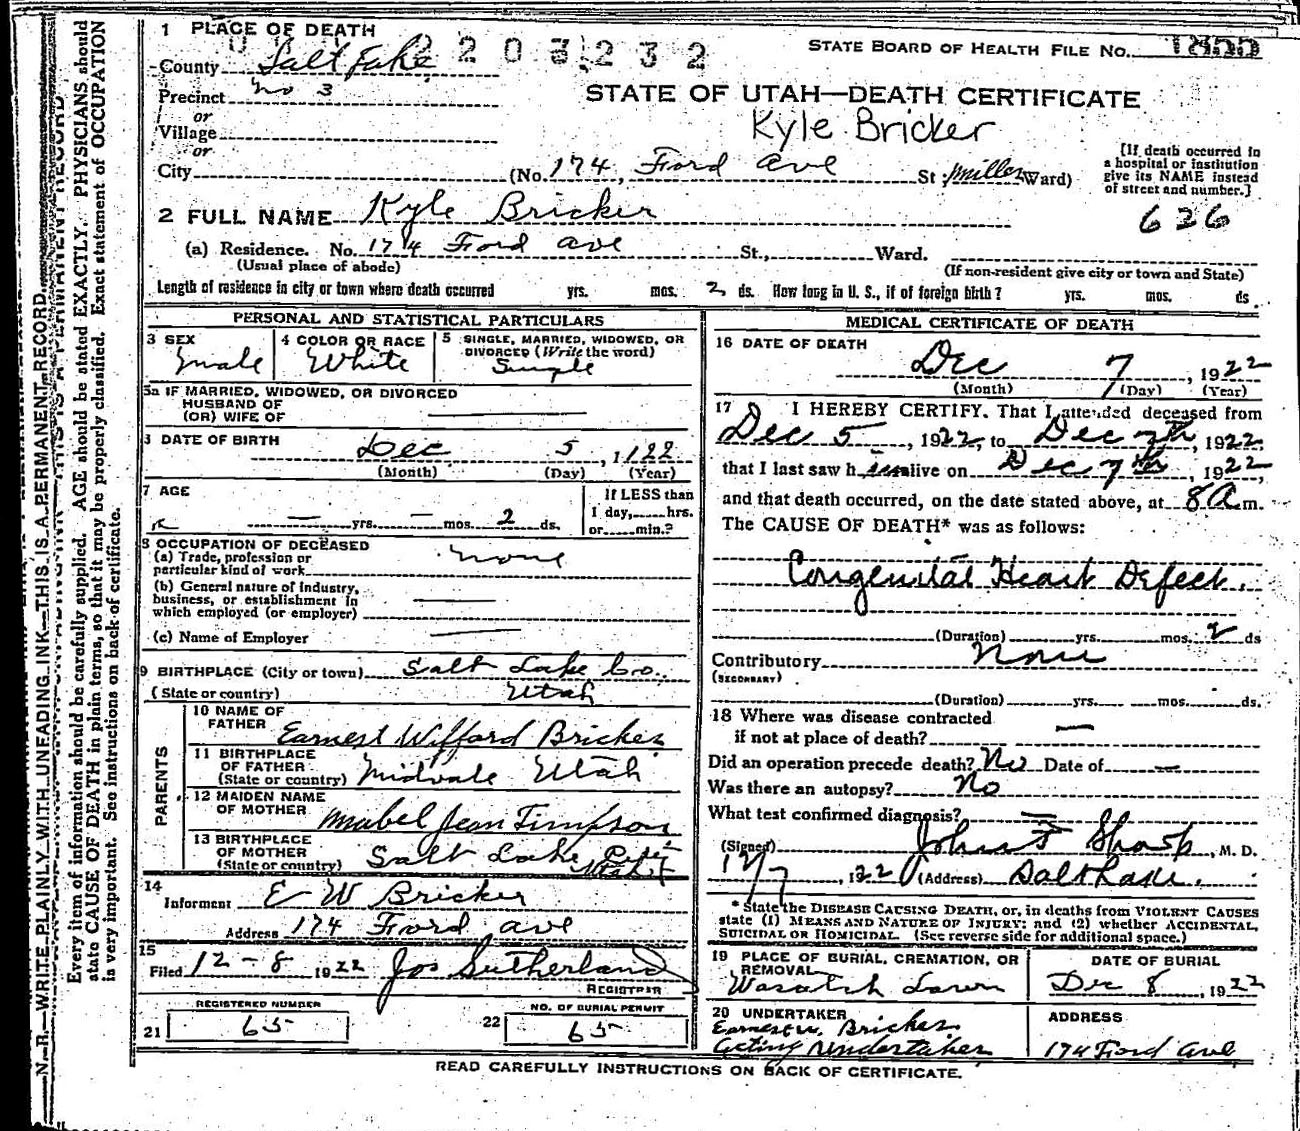 1 PLACE OF DEATH
2203232
STATE BOARD OF HEALTH FILE No. 1855
County Salt Lake
Precinct No 3
or
Village
or
City
STATE OF UTAH—DEATH CERTIFICATE
Kyle Bricker
(No. 174, Ford Ave St; Miller Ward)
[If death occurred in
a hospital or institution
give its NAME instead
of street and number.]
626
2 FULL NAME Kyle Bricker
(a) Residence. No. 174 Ford Ave St., Ward.
(Usual place of abode)
(If non-resident give city or town and State)
Length of residence in city or town where death occurred yrs. mos. 2 ds. How long in U. S., if of foreign birth? yrs. mos. ds.
PERSONAL AND STATISTICAL PARTICULARS
3 SEX
male
4 COLOR OR RACE
White
5 SINGLE, MARRIED, WIDOWED, OR
DIVORCED (Write the word)
Single
5a IF MARRIED, WIDOWED, OR DIVORCED
HUSBAND OF
(OR) WIFE OF
DATE OF BIRTH
Dec 5, 1922
(Month) (Day) (Year)
7 AGE
— yrs. — mos. 2 ds.
If LESS than
1 day, hrs.
or min.?
8 OCCUPATION OF DECEASED
(a) Trade, profession or
particular kind of work
none
(b) General nature of industry,
business, or establishment in
which employed (or employer)
(c) Name of Employer
9 BIRTHPLACE (City or town) Salt Lake Co.
(State or country) Utah
PARENTS
10 NAME OF
FATHER Earnest Wifford Bricker
11 BIRTHPLACE
OF FATHER
(State or country) Midvale Utah
12 MAIDEN NAME
OF MOTHER Mabel Jean Timpson
13 BIRTHPLACE
OF MOTHER
(State or country) Salt Lake City
Utah
14
Informent E W Bricker
Address 174 Ford Ave
15
Filed 12-8 1922 Jos Sutherland
REGISTRAR
21 REGISTERED NUMBER
65
22 NO. OF BURIAL PERMIT
65
MEDICAL CERTIFICATE OF DEATH
16 DATE OF DEATH
Dec 7, 1922
(Month) (Day) (Year)
17 I HEREBY CERTIFY. That I attended deceased from
Dec 5, 1922, to Dec 7th, 1922,
that I last saw h im alive on Dec 7th, 1922,
and that death occurred, on the date stated above, at 8 A m.
The CAUSE OF DEATH* was as follows:
Congenital Heart Defect.
(Duration) yrs. mos. 2 ds
Contributory None
(SECONDARY)
(Duration) yrs. mos. ds.
18 Where was disease contracted
if not at place of death? —
Did an operation precede death? No Date of —
Was there an autopsy? No
What test confirmed diagnosis? —
(Signed) John F Sharp, M. D.
12/7, 1922 (Address) Salt Lake.
* State the DISEASE CAUSING DEATH, or, in deaths from VIOLENT CAUSES
state (1) MEANS AND NATURE OF INJURY; and (2) whether ACCIDENTAL,
SUICIDAL OR HOMICIDAL. (See reverse side for additional space.)
19 PLACE OF BURIAL, CREMATION, OR
REMOVAL
Wasatch Lawn
DATE OF BURIAL
Dec 8, 1922
20 UNDERTAKER
Earnest W. Bricker
Acting Undertaker
ADDRESS
174 Ford Ave,
READ CAREFULLY INSTRUCTIONS ON BACK OF CERTIFICATE.
N. B.—WRITE PLAINLY WITH UNFADING INK—THIS IS A PERMANENT RECORD
Every item of information should be carefully supplied. AGE should be stated EXACTLY. PHYSICIANS should
state CAUSE OF DEATH in plain terms, so that it may be properly classified. Exact statement of OCCUPATION
is very important. See instructions on back of certificate.